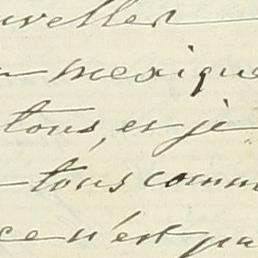 uvelles
mexique
tous, et je
tous comm
ce n'est pa